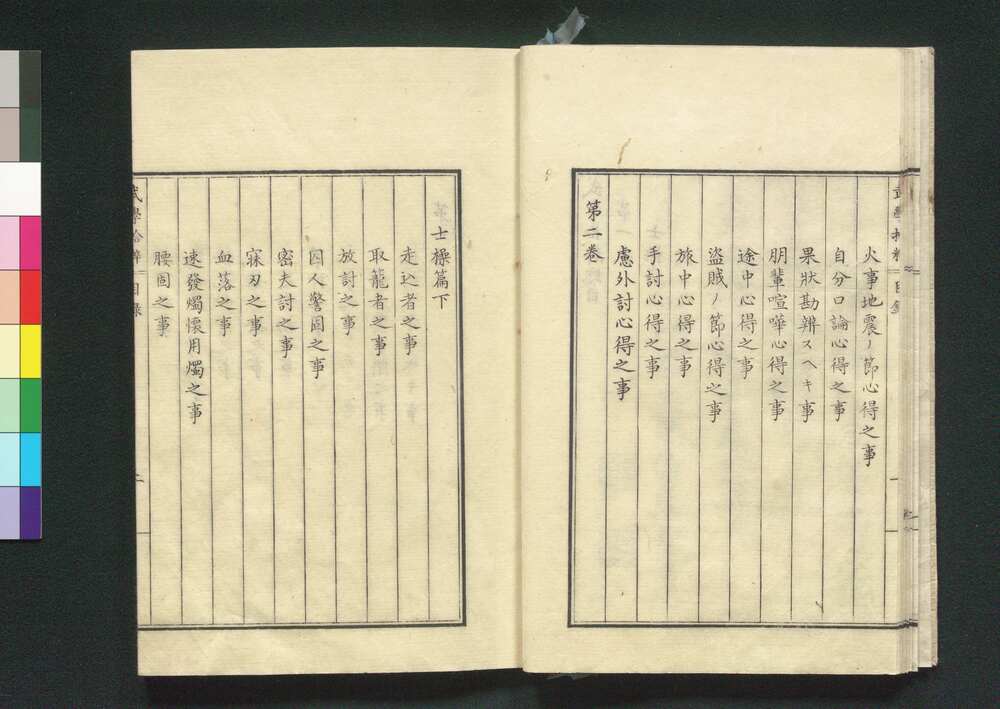 火事地震ノ節心得之事
自分口論心得之事
果狀勘辨スヘキ事
朋輩喧嘩心得之事
途中心得之事
盜賊ノ節心得之事
旅中心得之事
手討心得之事
慮外討心得之事
第二卷
士操篇下
走込者之事
取籠者之事
放討之事
囚人警固之事
密夫討之事
寐刃之事
血落之事
速發燭懷用燭之事
腰固之事
武學拾粹 目錄